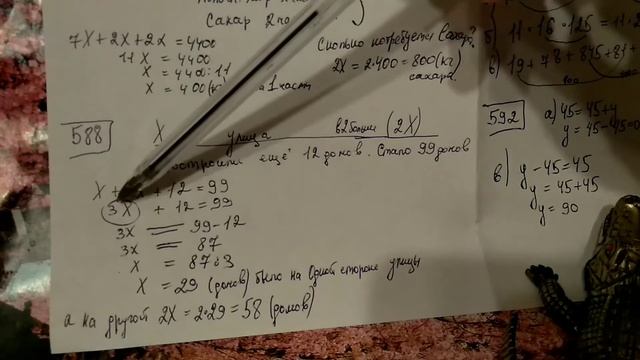 Сахар 2
7x+2x+2x = 4400
11x = 4400
x = 4400:11
x = 400(кг) 1 часть
Сколько потребуется сахара?
2x = 2·400 = 800 (кг)
сахара.
б) 11·16·125 = 11·2
в) 19+78+845+81+
588
x улица в 2 больше (2x)
построили ещё 12 домов. Стало 99 домов
x + + 12 = 99
3x + 12 = 99
3x = 99-12
3x = 87
x = 87:3
x = 29 (домов) было на одной стороне улицы
а на другой 2x = 2·29 = 58 (домов)
592
а) 45 = 45+y
y = 45-45=0
в) y-45=45
y = 45+45
y = 90